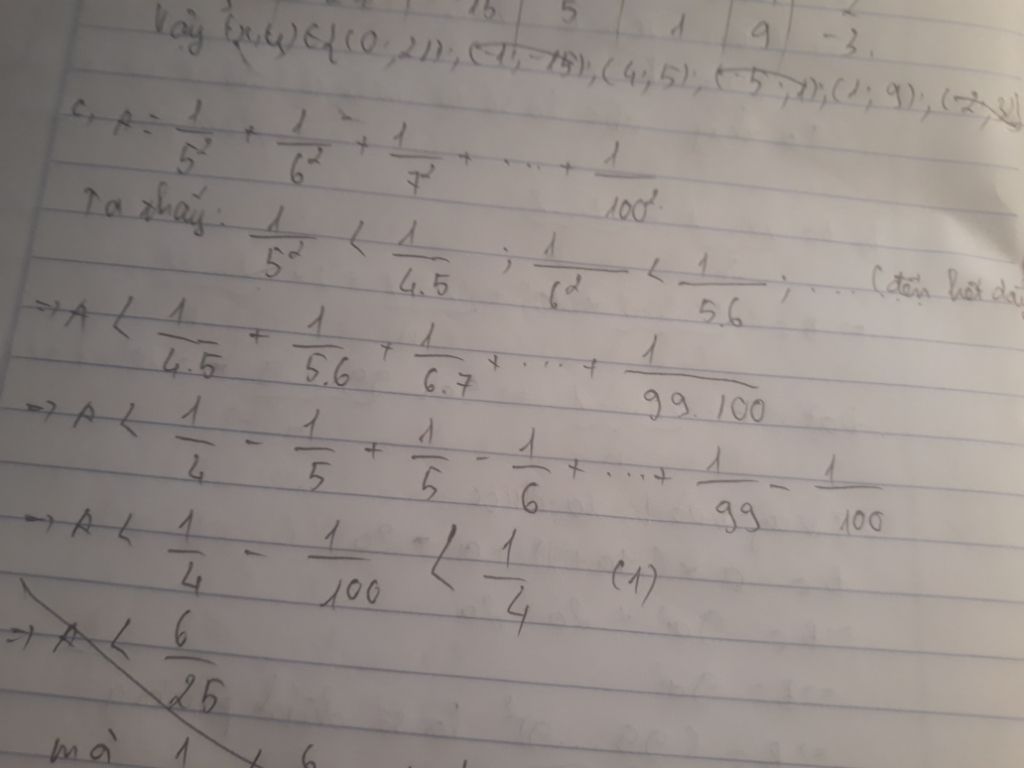 15 5 1 9 -3.
Vậy (x,y) ∈ {(0; 21); (-1; -15); (4; 5); (-5; 1); (1; 9); (-2;
c, A = 1/5² + 1/6² + 1/7² + ... + 1/100².
Ta thấy: 1/5² < 1/4.5 ; 1/6² < 1/5.6 ; .... (đến hết dãy
=> A < 1/4.5 + 1/5.6 + 1/6.7 + ..... + 1/99.100
=> A < 1/4 - 1/5 + 1/5 - 1/6 + ..... + 1/99 - 1/100
=> A < 1/4 - 1/100 < 1/4 (1)
=> A < 6/25
mà 1 6